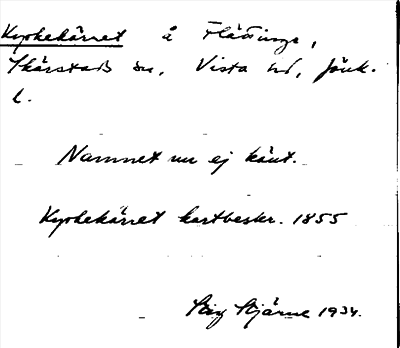 Kyrkekärret å Flättinge,
Skärstads sn, Vista hd, Jönk.
l.
Namnet nu ej känt.
Kyrkekärret kartbeskr. 1855
Stig Stjärne 1934.